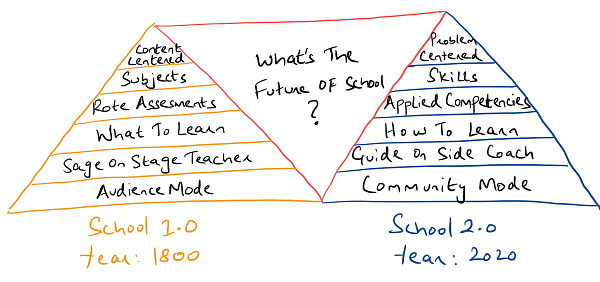 Content
Centered
Subjects
Rote Assesments
What To Learn
Sage on Stage Teacher
Audience Mode
School 1.0
Year: 1800
What's The
Future Of School
?
Problem
Centered
Skills
Applied Competencies
How To Learn
Guide on Side Coach
Community Mode
School 2.0
Year: 2020